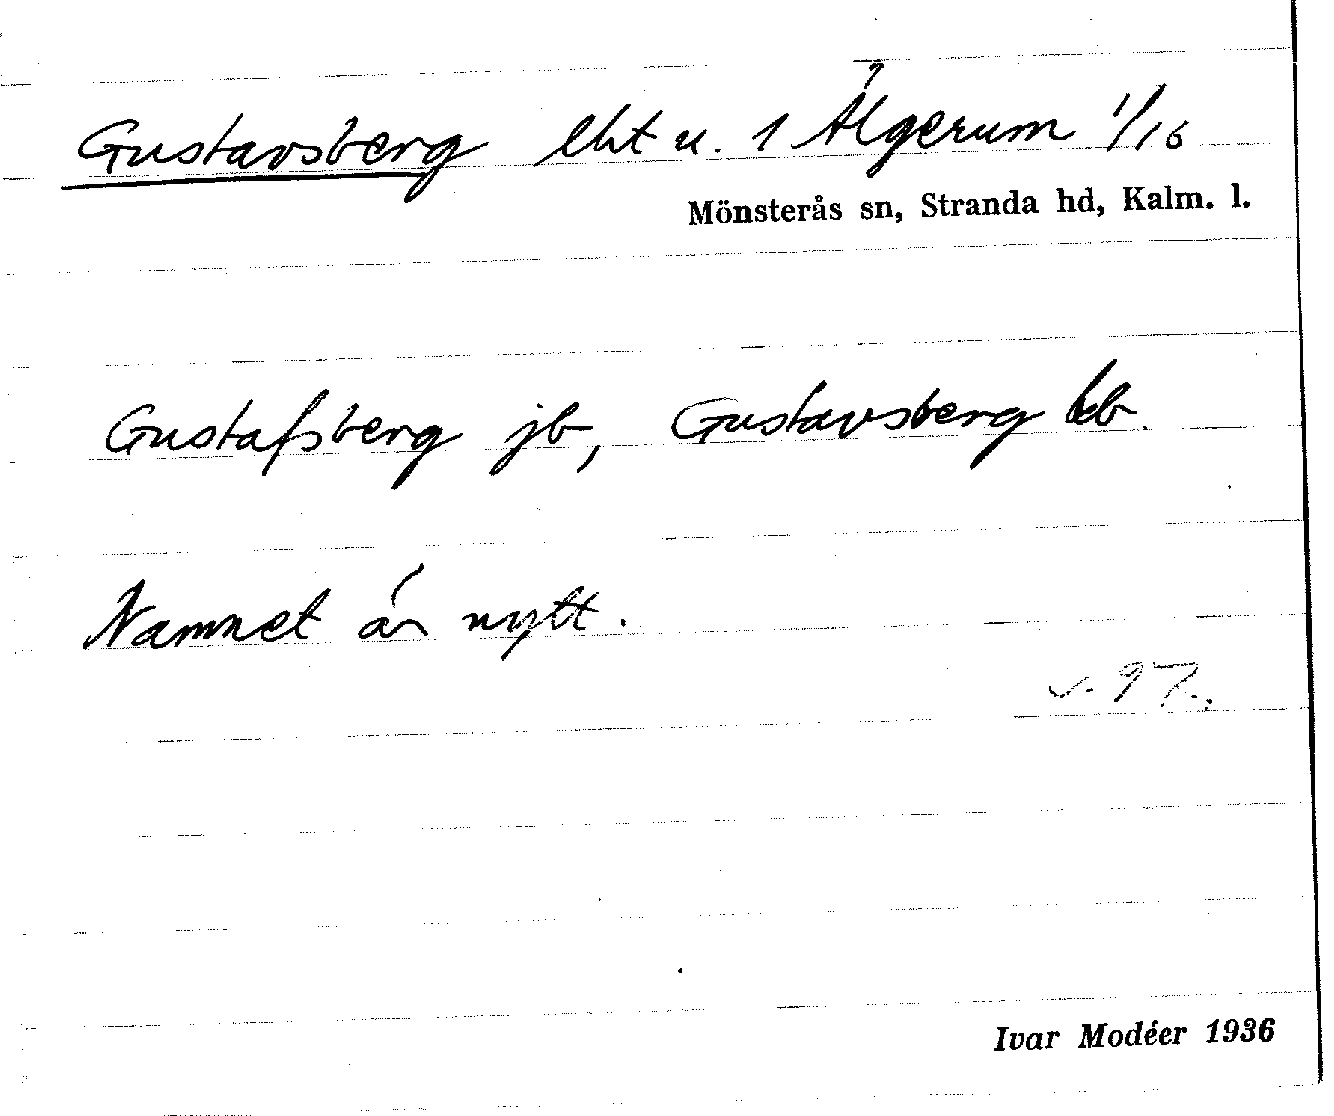 Gustavsberg lht u. 1 Älgerum 1/16
Mönsterås sn, Stranda hd, Kalm. l.
Gustafsberg jb, Gustavsberg kb.
Namnet är nytt.
v. 97.
Ivar Modéer 1936